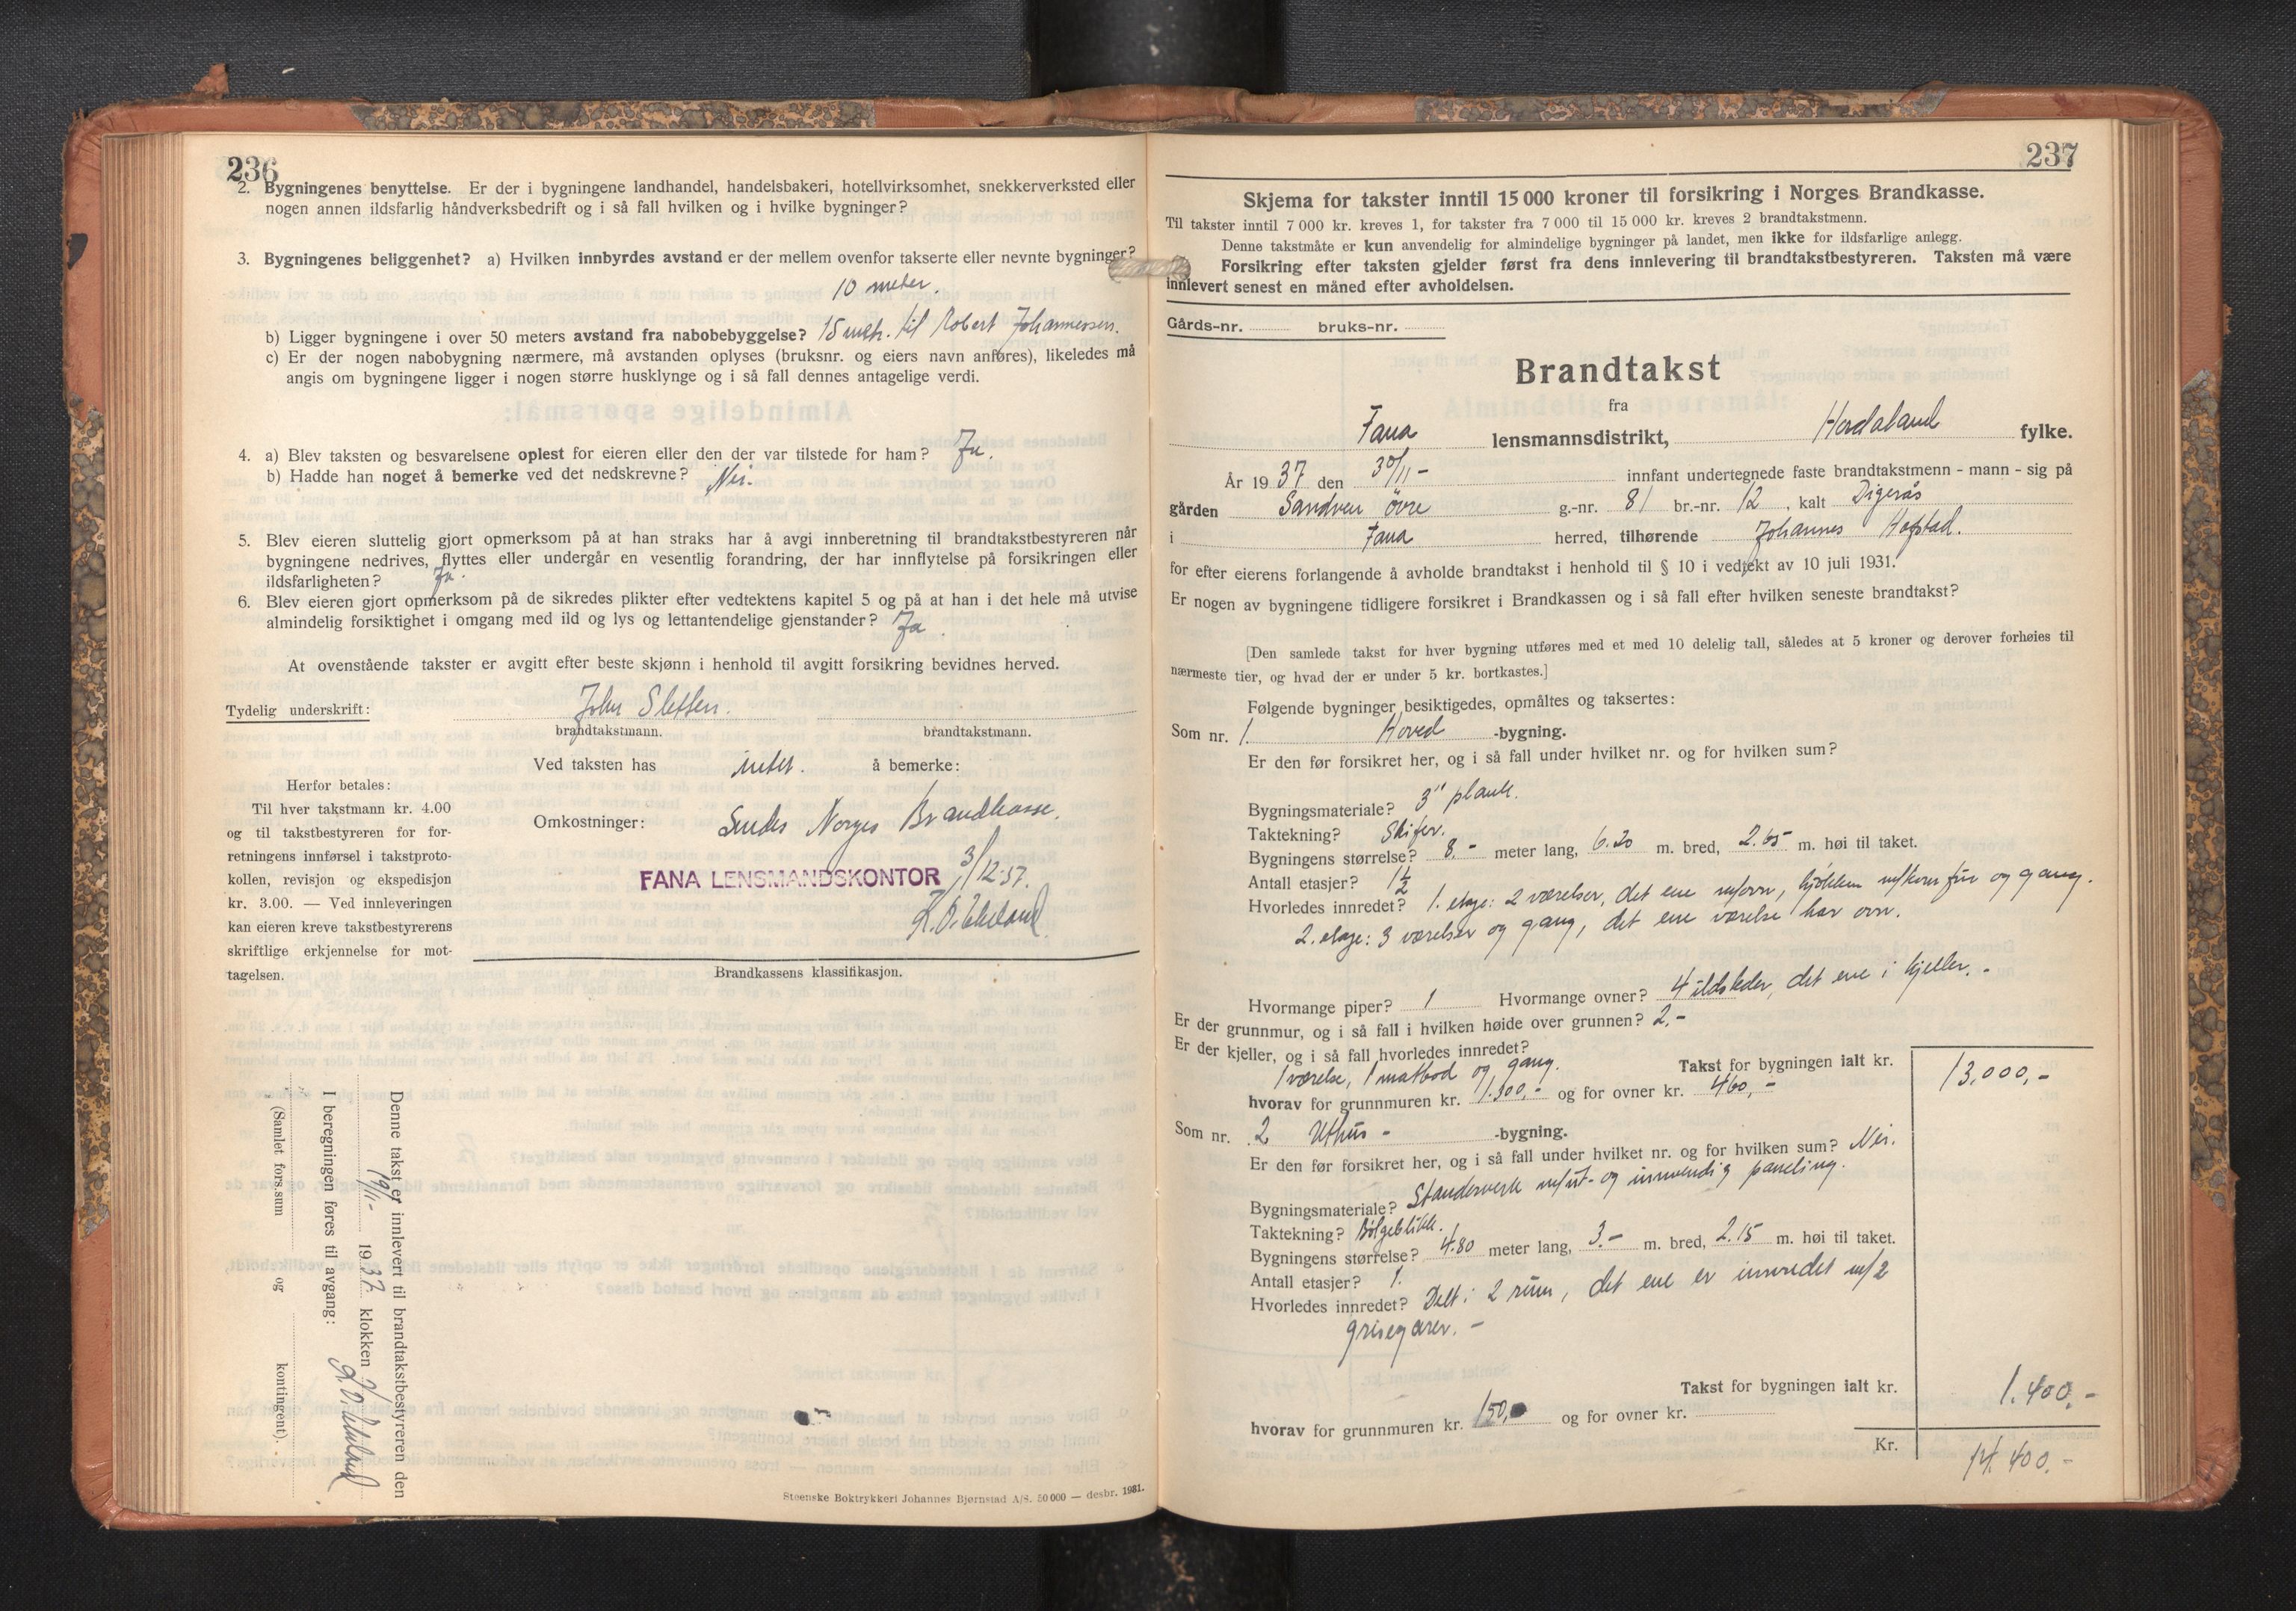 236
2. Bygningenes benyttelse. Er der i bygningene landhandel, handelsbakeri, hotellvirksomhet, snekkerverksted eller
nogen annen ildsfarlig håndverksbedrift og i så fall hvilken og i hvilke bygninger?
3. Bygningenes beliggenhet? a) Hvilken innbyrdes avstand er der mellem ovenfor takserte eller nevnte bygninger?
10 meter.
b) Ligger bygningene i over 50 meters avstand fra nabobebyggelse? 15 mtr. til Robert Johannessen.
c) Er der nogen nabobygning nærmere, må avstanden oplyses (bruksnr. og eiers navn anføres), likeledes må
angis om bygningene ligger i nogen større husklynge og i så fall dennes antagelige verdi.
4. a) Blev taksten og besvarelsene oplest for eieren eller den der var tilstede for ham? Ja.
b) Hadde han noget å bemerke ved det nedskrevne? Nei.
5. Blev eieren sluttelig gjort opmerksom på at han straks har å avgi innberetning til brandtakstbestyreren når
bygningene nedrives, flyttes eller undergår en vesentlig forandring, der har innflytelse på forsikringen eller
ildsfarligheten? Ja.
6. Blev eieren gjort opmerksom på de sikredes plikter efter vedtektens kapitel 5 og på at han i det hele må utvise
almindelig forsiktighet i omgang med ild og lys og lettantendelige gjenstander? Ja.
At ovenstående takster er avgitt efter beste skjønn i henhold til avgitt forsikring bevidnes herved.
Tydelig underskrift: John Sletten.
brandtakstmann. brandtakstmann.
Ved taksten has intet. å bemerke:
Herfor betales:
Til hver takstmann kr. 4.00
og til takstbestyreren for for-
retningens innførsel i takstproto-
kollen, revisjon og ekspedisjon
kr. 3.00. — Ved innleveringen
kan eieren kreve takstbestyrerens
skriftlige erkjennelse for mot-
tagelsen.
Omkostninger: Sendes Norges Brandkasse.
FANA LENSMANDSKONTOR 3/12.37.
Brandkassens klassifikasjon.
Denne takst er innlevert til brandtakstbestyreren den
19/11- 1937. klokken
I beregningen føres til avgang:
(Samlet fors.sum og kontingent).
Steenske Boktrykkeri Johannes Bjørnstad A/S. 50 000 — desbr. 1931.
237
Skjema for takster inntil 15 000 kroner til forsikring i Norges Brandkasse.
Til takster inntil 7 000 kr. kreves 1, for takster fra 7 000 til 15 000 kr. kreves 2 brandtakstmenn.
Denne takstmåte er kun anvendelig for almindelige bygninger på landet, men ikke for ildsfarlige anlegg.
Forsikring efter taksten gjelder først fra dens innlevering til brandtakstbestyreren. Taksten må være
innlevert senest en måned efter avholdelsen.
Gårds-nr. bruks-nr.
Brandtakst
fra
Fana lensmannsdistrikt, Hordaland fylke.
År 1937 den 30/11- innfant undertegnede faste brandtakstmenn - mann - sig på
gården Sandven övre g.-nr. 81 br.-nr. 12, kalt Digerås
i Fana herred, tilhørende Johannes Hopstad.
for efter eierens forlangende å avholde brandtakst i henhold til § 10 i vedtekt av 10 juli 1931.
Er nogen av bygningene tidligere forsikret i Brandkassen og i så fall efter hvilken seneste brandtakst?
[Den samlede takst for hver bygning utføres med et med 10 delelig tall, således at 5 kroner og derover forhøies til
nærmeste tier, og hvad der er under 5 kr. bortkastes.]
Følgende bygninger besiktigedes, opmåltes og taksertes:
Som nr. 1. Hoved -bygning.
Er den før forsikret her, og i så fall under hvilket nr. og for hvilken sum?
Bygningsmateriale? 3" plank.
Taktekning? Skifer.
Bygningens størrelse? 8.- meter lang, 6.20 m. bred, 2.65 m. høi til taket.
Antall etasjer? 1½
Hvorledes innredet? 1. etage: 2 værelser, det ene m/ovn, kjøkken m/komfür og gang.
2. etage: 3 værelser og gang, det ene værelse har ovn.
Hvormange piper? 1 Hvormange ovner? 4 ildsteder, det ene i kjeller.-
Er der grunnmur, og i så fall i hvilken høide over grunnen? 2.-
Er der kjeller, og i så fall hvorledes innredet?
1 værelse, 1 matbod og gang. Takst for bygningen ialt kr. 13.000,-
hvorav for grunnmuren kr. 1.300,- og for ovner kr. 460,-
Som nr. 2 Uthüs - -bygning.
Er den før forsikret her, og i så fall under hvilket nr. og for hvilken sum? Nei.
Bygningsmateriale? Standerverk m/ut- og innvendig paneling.
Taktekning? Bölgeblikk.
Bygningens størrelse? 4.80 meter lang, 3.- m. bred, 2.15 m. høi til taket.
Antall etasjer? 1.
Hvorledes innredet? Delt i 2 rüm, det ene er innredet m/2
grisegarer. -
Takst for bygningen ialt kr. 1.400,-
hvorav for grunnmuren kr. 150, og for ovner kr.
Kr. 14.400.-